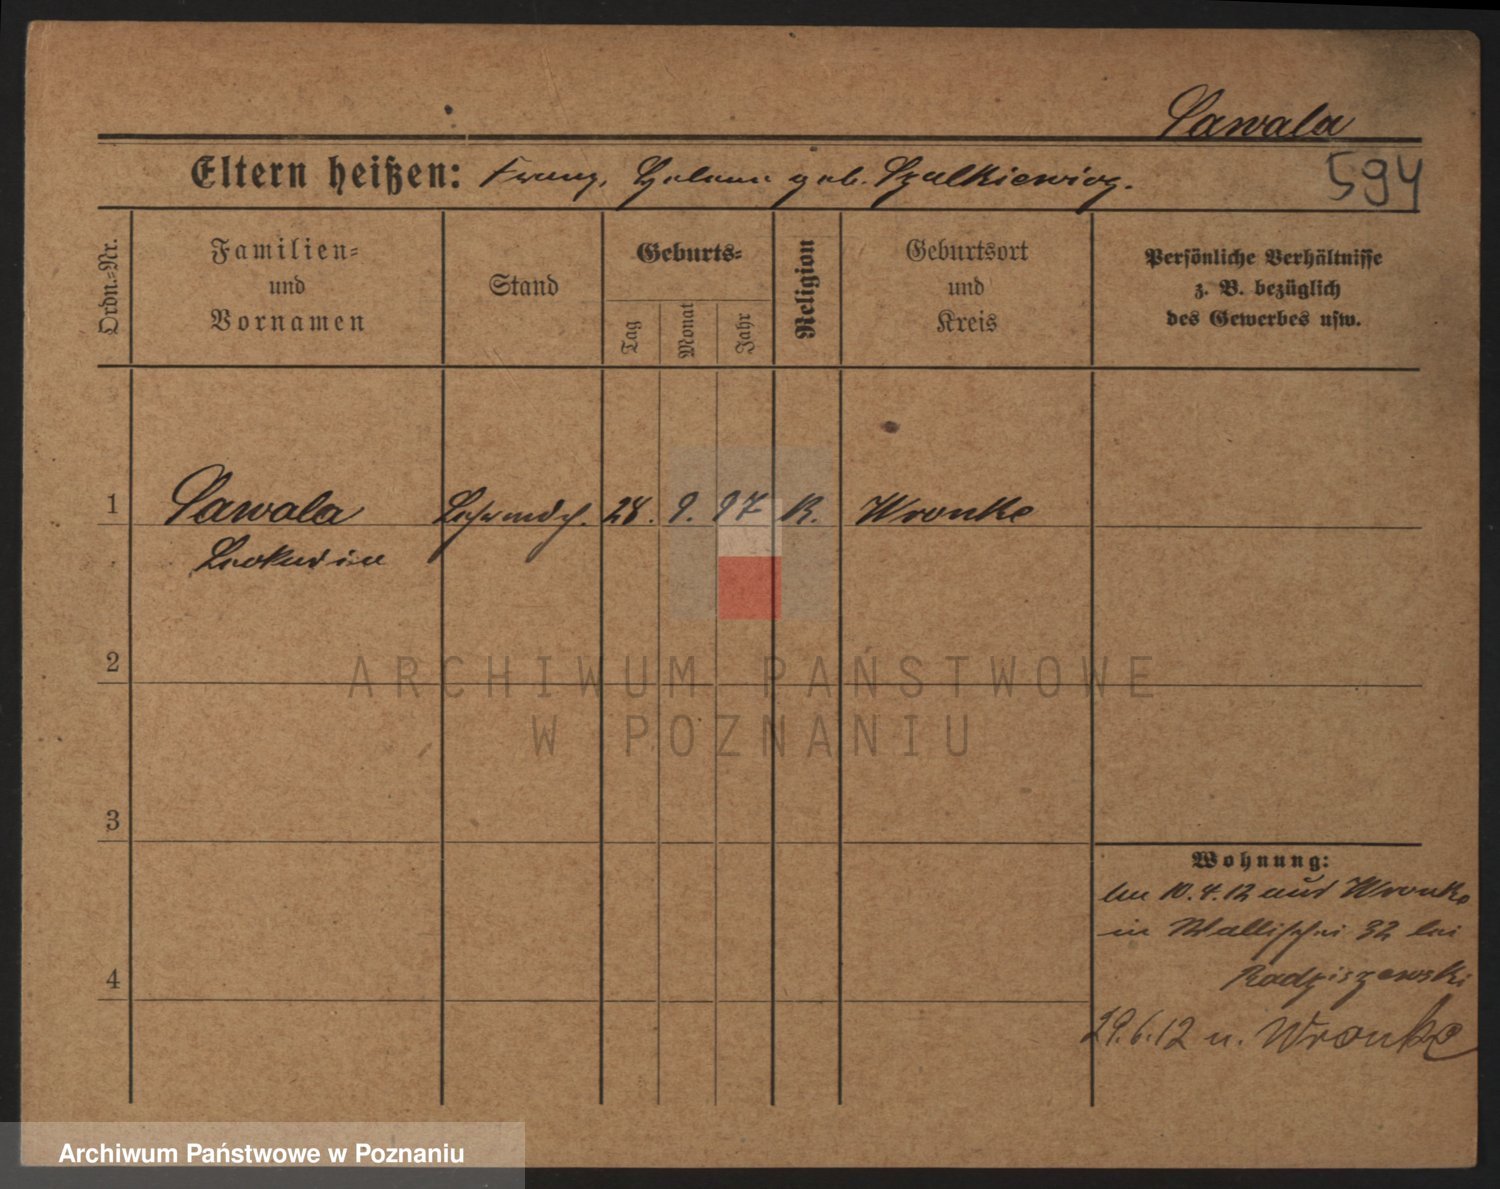 Sawala
Eltern heißen: Franz, Helene geb. Szalkiewicz.
594
Ordn.=Nr.
Familien=
und
Vornamen
Stand
Geburts=
Tag
Monat
Jahr
Religion
Geburtsort
und
Kreis
Persönliche Verhältnisse
z. B. bezüglich
des Gewerbes usw.
1 Sawala 28. 9. 97 K. Wronke
2
3
4
Wohnung:
Am 10.4.12 aus Wronke
in Wallischei 32 bei
Radziszewski
29.6.12 n. Wronke
ARCHIWUM PAŃSTWOWE
W POZNANIU
Archiwum Państwowe w Poznaniu